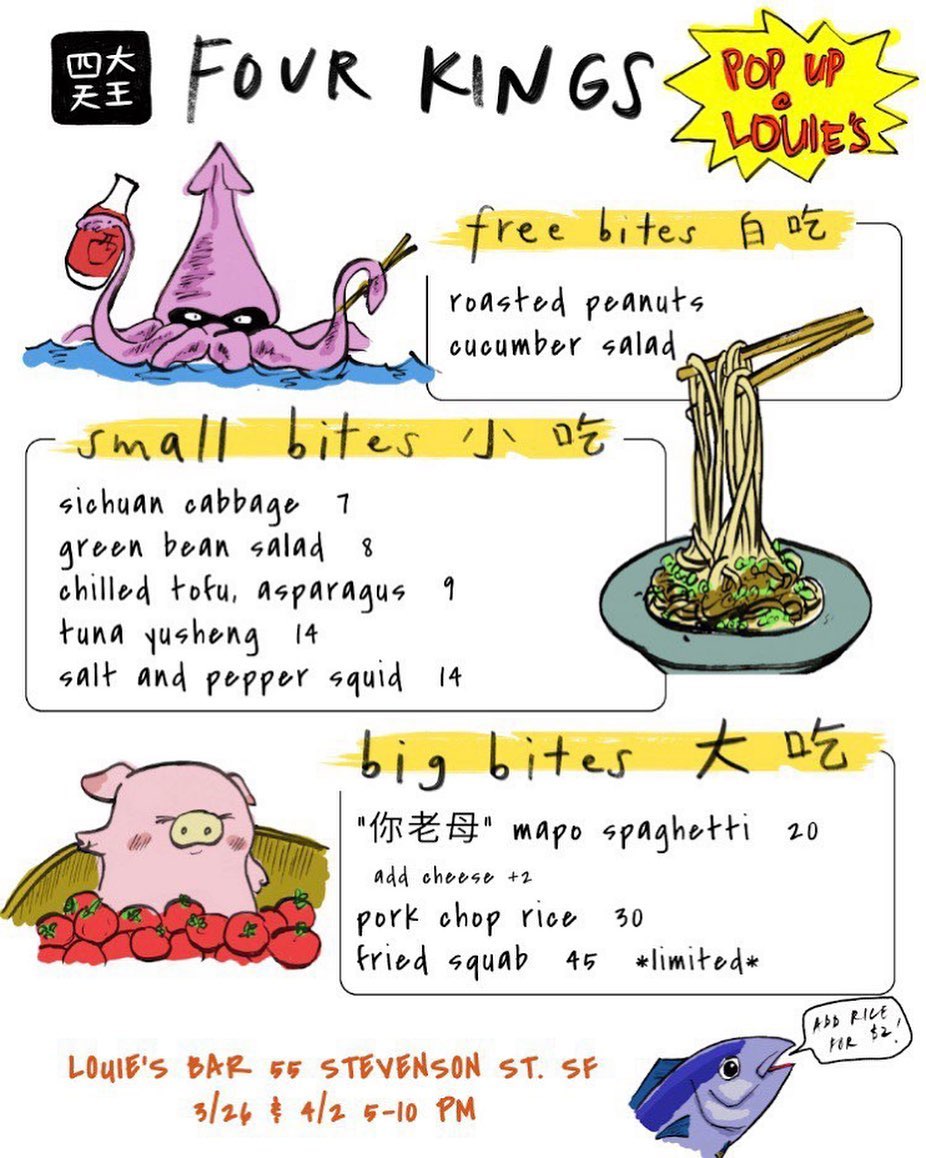 四大
天王
FOUR KINGS
POP UP
@
LOUIE'S
free bites 白吃
roasted peanuts
cucumber salad
small bites 小吃
sichuan cabbage 7
green bean salad 8
chilled tofu, asparagus 9
tuna yusheng 14
salt and pepper squid 14
big bites 大吃
"你老母" mapo spaghetti 20
add cheese +2
pork chop rice 30
fried squab 45 *limited*
ADD RICE
FOR $2!
LOUIE'S BAR 55 STEVENSON ST. SF
3/26 & 4/2 5-10 PM